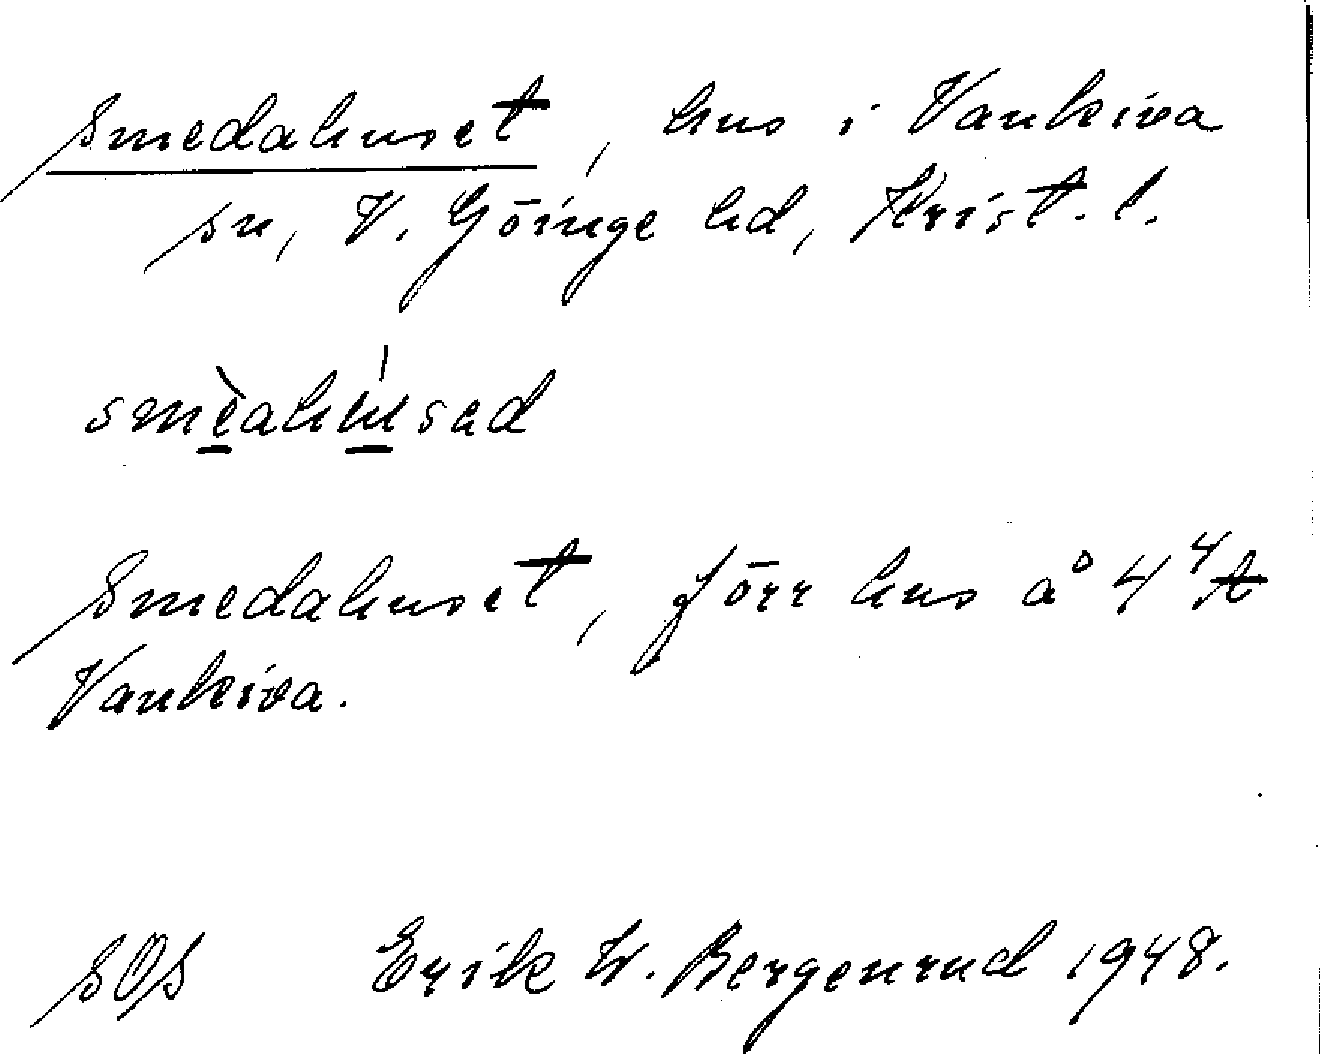 Smedahuset, hus i Vankiva
sn, V. Göinge hd, Krist. l.
smèahu̍sad
Smedahuset, förr hus å 4
Vankiva.
SOS Erik W. Bergenrud 1948.